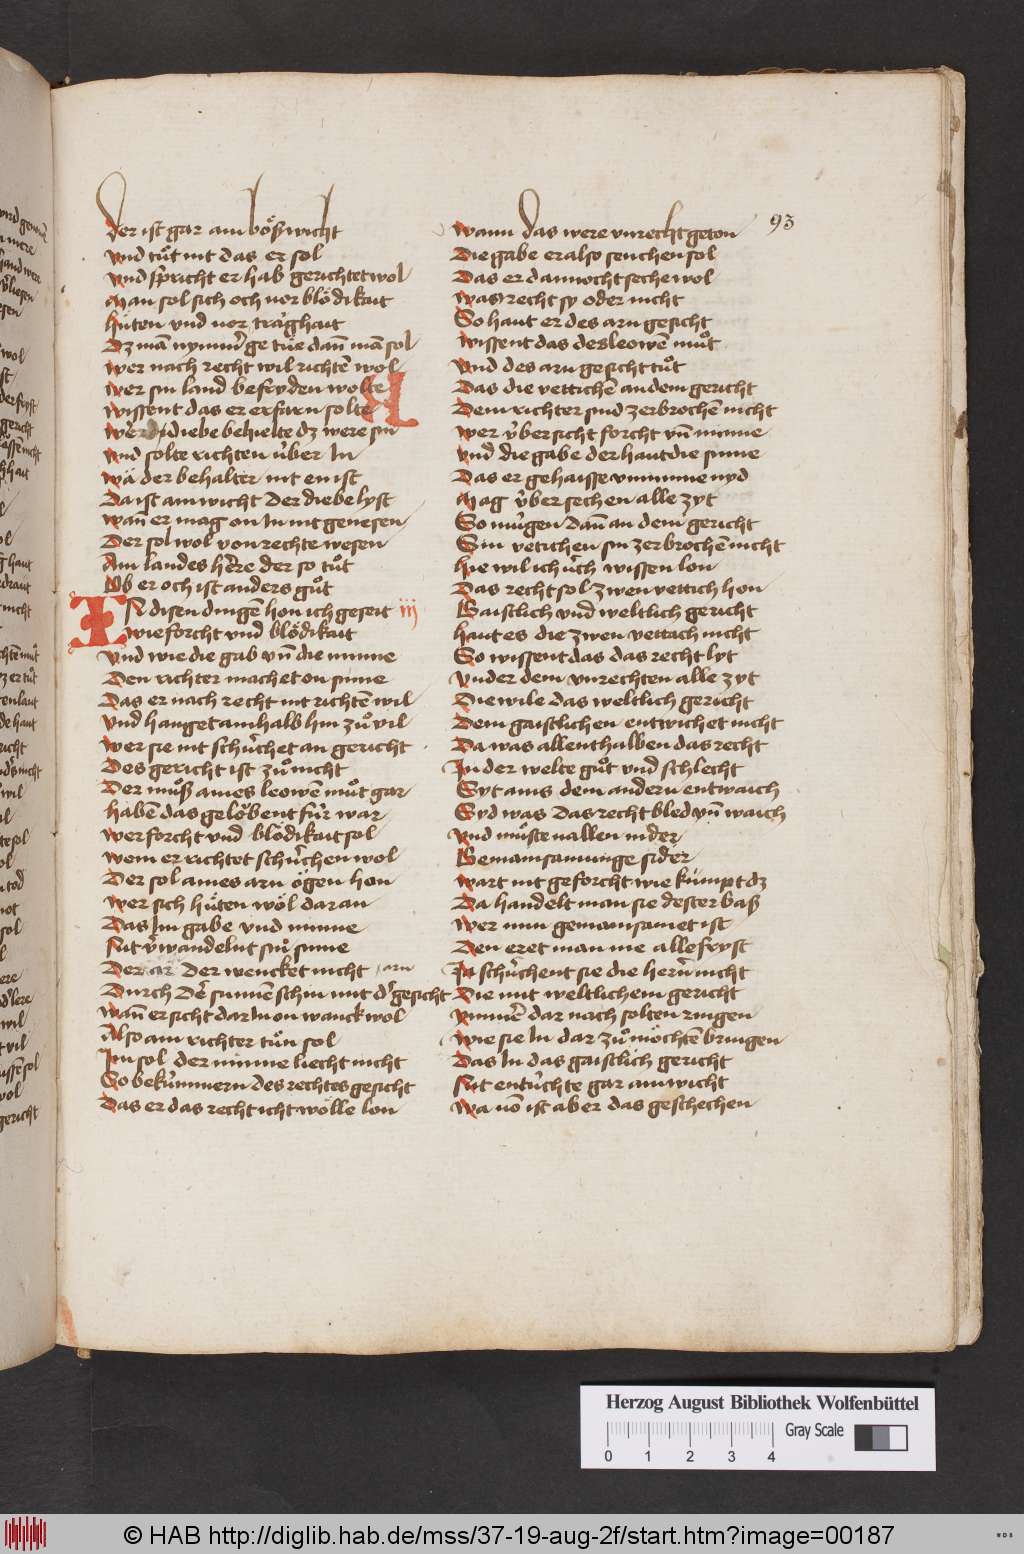 93
Der ist gar ain bößwicht
Vnd tuͦt nit das er sol
Vnd spricht er hab gerichtet wol
Man sol sich och vor blödikait
Hüten vnd vor traghait
Dz mā nymm̄ ge tuͤe dan̄ mā sol
Wer nach recht wil richtē wol
Wer sin land befryden wolte
Wissent das er erfarn solte
Wer diebe behielte dz were sin
Vnd solte richten über In
Wā der behalter nit enist
Da ist ain wicht Der diebe lyst
Wan̄ er mag on In nit genesen
Der sol wol von rechte wesen
Ain landes hēre der so tuͦt
Ob er och ist anders guͦt
IN disen dingē hon ich geseit iij
Wie forcht vnd blödikait
Vnd wie die gab vn̄ die minne
Den richter machet on sinne
Das er nach recht nit richtē wil
Vnd hanget ainhalb hin zuͦ vil
Wer sie nit schüchet an gericht
Des gericht ist zuͦ nicht
Der muͦß aines leowen muͦt gar
Haben das gelöbent für war
Wer forcht vnd blödikait sol
Wem er richtet schüchen wol
Der sol aines arn ögen hon
Wer sich hüten wol dar an
Das Im gabe vnd minne
Nit v̄wandelnt sin sinne
Der ar Der wencket nicht arn
Durch Dē sunnē schin mit d' gesicht
Wan̄ er sicht dar In on wanck wol
Also ain richter tuͦn sol
Im sol der minne liecht nicht
So bekümmern des rechtes gesicht
Das er das recht icht wölle lon
Wann das were vnrecht geton
Die gabe er also senchen sol
Das er dannocht seche wol
Was recht sy oder nicht
So haut er des arn gesicht
Wissent das des leowē muͦt
Vnd des arn gesicht tuͦt
Das die vettichē an dem gericht
Dem richter sind zerbrochē nicht
Wer v̈bersicht forcht vn̄ minne
Vnd die gabe der haut die sinne
Das er gehaisse vnminne nyd
Mag v̈bersechen alle zyt
So mügen dan̄ an dem gericht
Sin vetichen sin zerbrochē nicht
Hie wil ich üch wissen lon
Das recht sol zwen vettich hon
Gaistlich vnd weltlich gericht
Haut es die zwen vettach nicht
So wissent das das recht lyt
Vnder dem vnrechten alle zyt
Die wile das weltlich gericht
Dem gaistlichen entwichet nicht
Da was allenthalben das recht
In der welte guͦt vnd schlecht
Syt ains dem andern entwaich
Syd was das recht bled vn̄ waich
Vnd muͤste vallen nider
Gemainsamunge sider
Wart nit geforcht wie kümpt dz
Da handelt man sie dester baß
Wer nun gemainsamet ist
Den eret man me alle fryst
Ja schüchent sie die hern̄ nicht
Die mit weltlichem gericht
Ymmē dar nach solten ringen
Wie sie In dar zuͦ möchtē bringen
Das In das gaistlich gericht
Nit entüchte gar ain wicht
Wa vō ist aber das geschechen
Herzog August Bibliothek Wolfenbüttel
0 1 2 3 4
Gray Scale
© HAB http://diglib.hab.de/mss/37-19-aug-2f/start.htm?image=00187